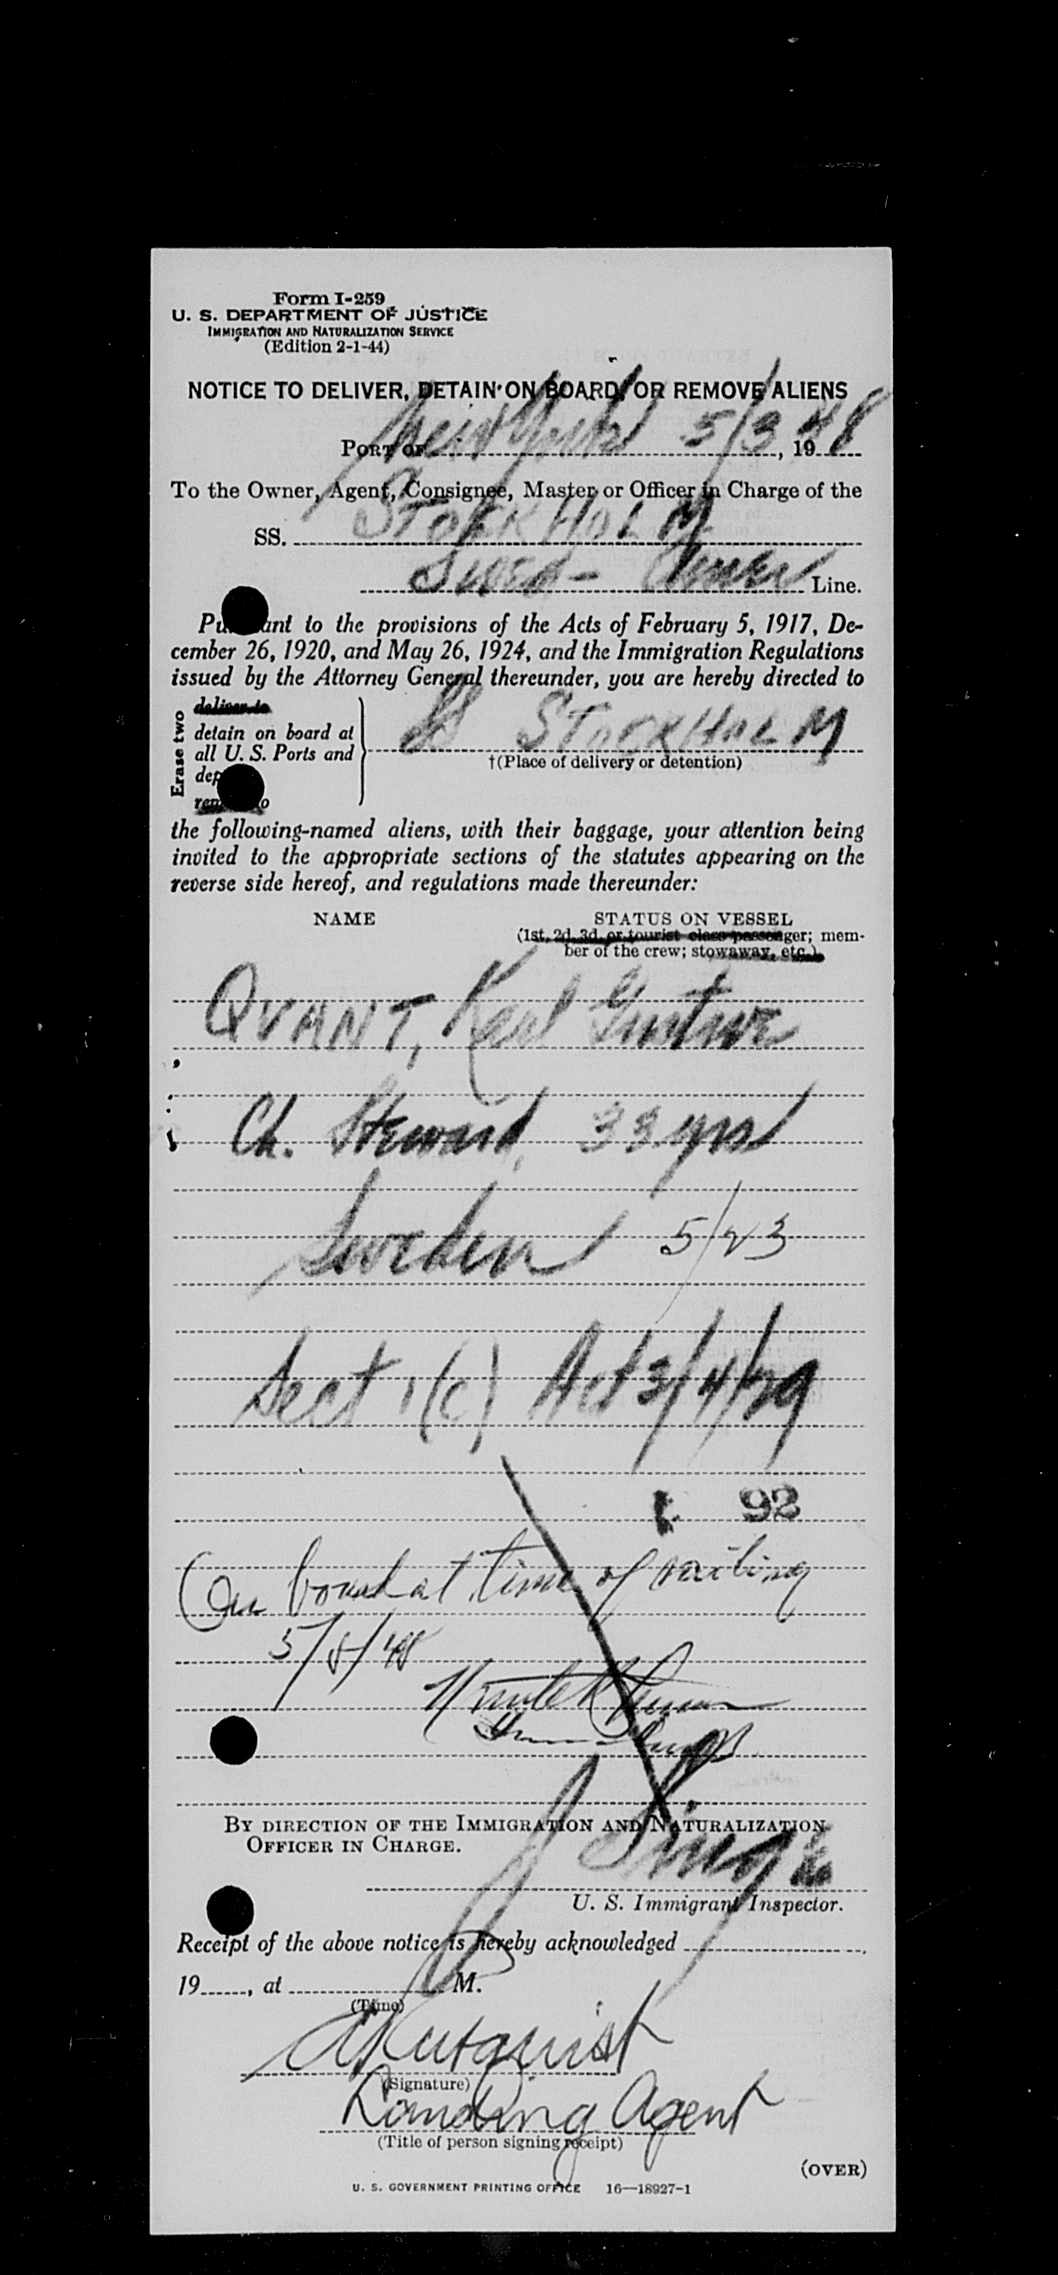 Form I-259
U. S. DEPARTMENT OF JUSTICE
IMMIGRATION AND NATURALIZATION SERVICE
(Edition 2-1-44)
NOTICE TO DELIVER, DETAIN ON BOARD, OR REMOVE ALIENS
PORT OF New York 5/3, 1948
To the Owner, Agent, Consignee, Master or Officer in Charge of the
SS. STOCKHOLM
Swed - Amer Line.
Pursuant to the provisions of the Acts of February 5, 1917, De-
cember 26, 1920, and May 26, 1924, and the Immigration Regulations
issued by the Attorney General thereunder, you are hereby directed to
Erase two
deliver to
detain on board at
all U. S. Ports and
dep
SS STOCKHOLM
†(Place of delivery or detention)
the following-named aliens, with their baggage, your attention being
invited to the appropriate sections of the statutes appearing on the
reverse side hereof, and regulations made thereunder:
NAME STATUS ON VESSEL
(1st, 2d, 3d, or tourist class passenger; mem-
ber of the crew; stowaway, etc.)
QVANT, Karl Gustave
Ch. Steward, 33 yrs
Sweden 5/23
Sect 1(c) Act 3/4/29
92
On board at time of sailing
5/5/48
BY DIRECTION OF THE IMMIGRATION AND NATURALIZATION
OFFICER IN CHARGE.
U. S. Immigrant Inspector.
Receipt of the above notice is hereby acknowledged
19, at M.
(Time)
(Signature)
Landing Agent
(Title of person signing receipt)
(OVER)
U. S. GOVERNMENT PRINTING OFFICE 16—18927-1